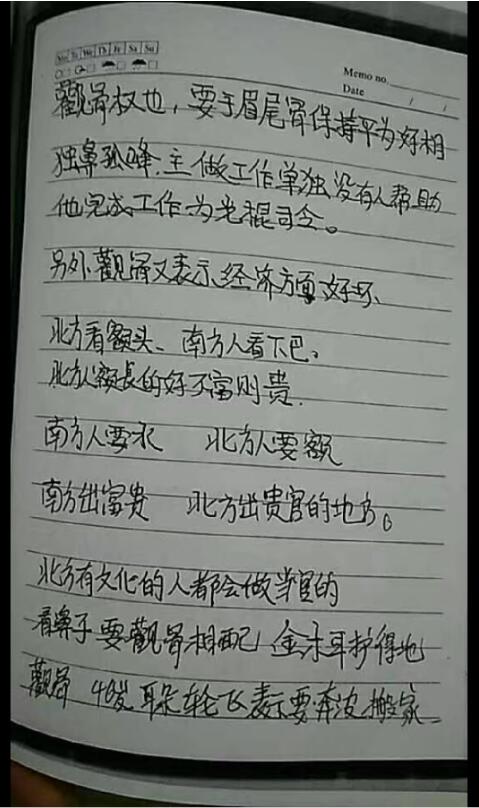 Mo Tu We Th Fr Sa Su
Memo no.
Date / /
觀骨权也，要于眉尾骨保持平为好相
独鼻孤峰.主做工作单独没有人帮助
他完成工作为光棍司令。
另外觀骨又表示经济方面好坏、
北方看额头、南方人看下巴，
北方人額長的好不富则贵.
南方人要水 北方人要额
南方出富贵 北方出贵官的地方。
北方有文化的人都会做当官的
看鼻子要觀骨相配 金木耳护得地
觀骨 46岁 耳朵轮飞表示要奔波搬家